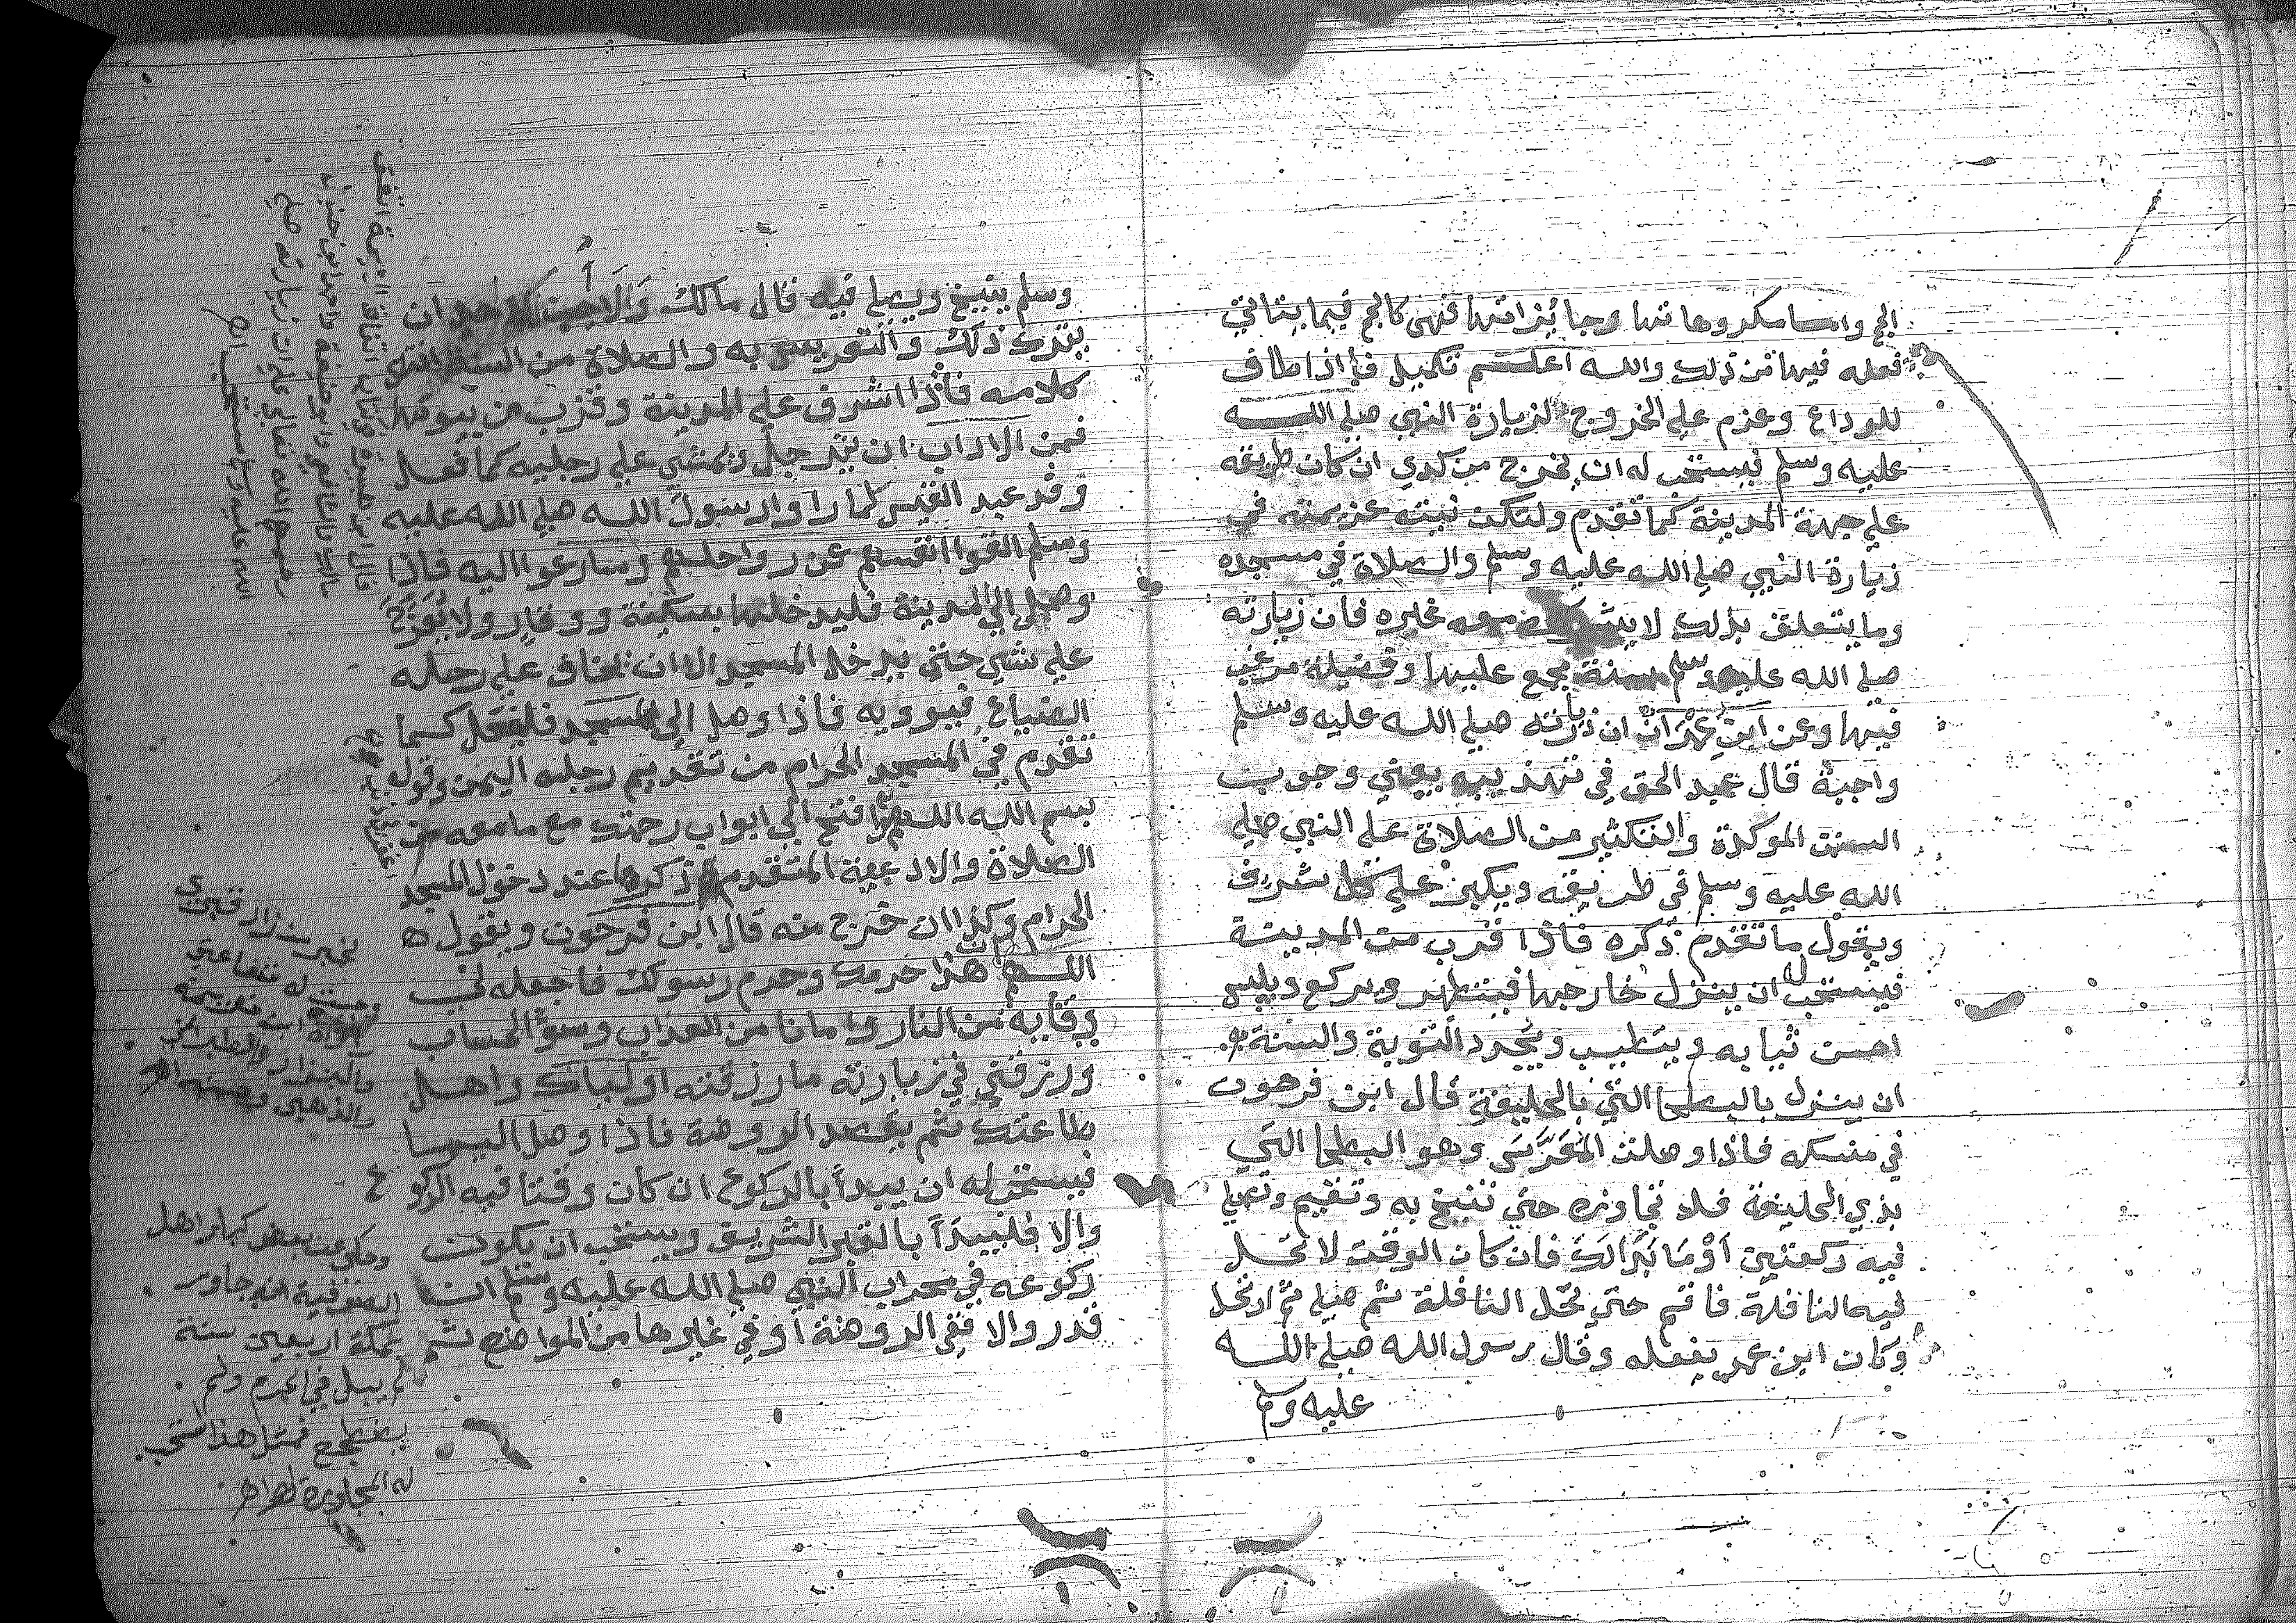 الحج واما مكروهاتها وجائزاتها فهى كالحج فيما يتاتي
فعله فيها من ذلك والله اعلم تكميل فاذا طاف
للوداع وعزم علي الخروج لزيارة النبي صلي الله
عليه وسلم فيستحب له ان يخرج من كدي ان كان طريقه
علي جهة المدينة كما تقدم ولتكن نيته عزيمته في
زيارة النبي صلي الله عليه وسلم والصلاة في مسجده
وما يتعلق بذلك لا يشرك معه غيره فان زيارته
صلي الله عليه وسلم سنة مجمع عليها وفضيلة مرغب
فيها وعن ابي عمران ان زيارته صلي الله عليه وسلم
واجبة قال عبد الحق في تهذيبه يعني وجوب
السنن الموكدة والتكثير من الصلاة علي النبي صلي
الله عليه وسلم في طريقه ويكبر علي كل شرف
ويقول ما تقدم ذكره فاذا قرب من المدينة
فيستحب له ان ينزل خارجها فيتطهر ويركع ويلبس
احسن ثيابه ويتطيب ويجدد التوبة والسنة
ان ينزل بالبطحا التي بالحليفة قال ابن فرحون
في منسكه فاذا وصلت المُعَرَّسَ وهو البطحا التي
بذي الحليفة فلا تجاوزه حتي تنيخ به وتقيم وتصلي
فيه ركعتين أوْ مَا بَدَا لَكَ فان كان الوقت لا تحل
فيه النافلة فاقم حتي تحل النافلة ثم صلي ثم ارتحل
وكان ابن عمر يفعله وقال رسول الله صلي الله
عليه وسلم
وسلم ينيخ ويصلي فيه قال مالك وَلَا أُحِب لاحد ان
يترك ذلك والتعريس به والصلاة من السنة انتهي
كلامه فاذا اشرف علي المدينة وقرب من بيوتها
فمن الاداب ان يترجل ويمشي علي رجليه كما فعل
وفد عبد القيس لما راوا رسول الله صلي الله عليه
وسلم القوا انفسهم عن رواحلهم وسارعوا اليه فاذا
وصل الي المدينة فليدخلها بسكينة ووقار ولا يُعَرِّجْ
علي شي حتي يدخل المسجد الا ان يخاف علي رحله
الضياع فيوويه فاذا وصل إلي المسجد فليفعل كما
تقدم في المسجد الحرام من تقديم رجله اليمني وقول
بسم الله اللهم افتح لي ابواب رحمتك مع ما معه من
الصلاة والادعية المتقدم ذكرها عند دخول المسجد
الحرام وكذا ان خرج منه قال ابن فرحون ويقول
اللهم ان هذا حرمك وحرم رسولك فاجعله لي
وقاية من النار وامانا من العذاب وسوء الحساب
وارزقني في زيارته ما رزقته اولياك واهل
طاعتك ثم يقصد الروضة فاذا وصل اليها
فيستحب له ان يبدأ بالركوع ان كان وقتا فيه الركوع
والا فليبدَأ بالقبر الشريف ويستحب ان يكون
ركوعه في محراب النبي صلي الله عليه وسلم ان
قدر والا ففي الروضة أو في غيرها من المواضع ثم
لخبر من زار قبري
وجبت له شفاعتي
رواه ابن خزيمة
والبزار والطبراني
والذهبي وحسنه اهـ
وحكي عن بعض كبار اهل
الصوفية انه جاور
بمكة اربعين سنة
لم يبل في الحرم ولم
يضطجع فمثل هذا تستحب
له المجاورة اهـ